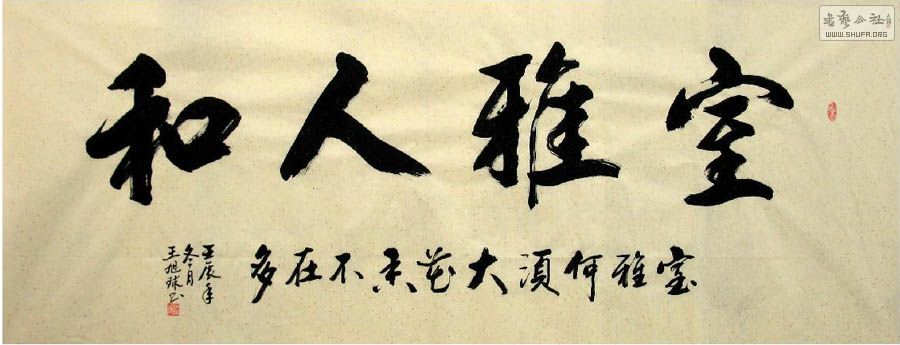 室雅人和
室雅何須大花香不在多
壬辰年
冬月
王旭球书
書藝公社
WWW.SHUFA.ORG